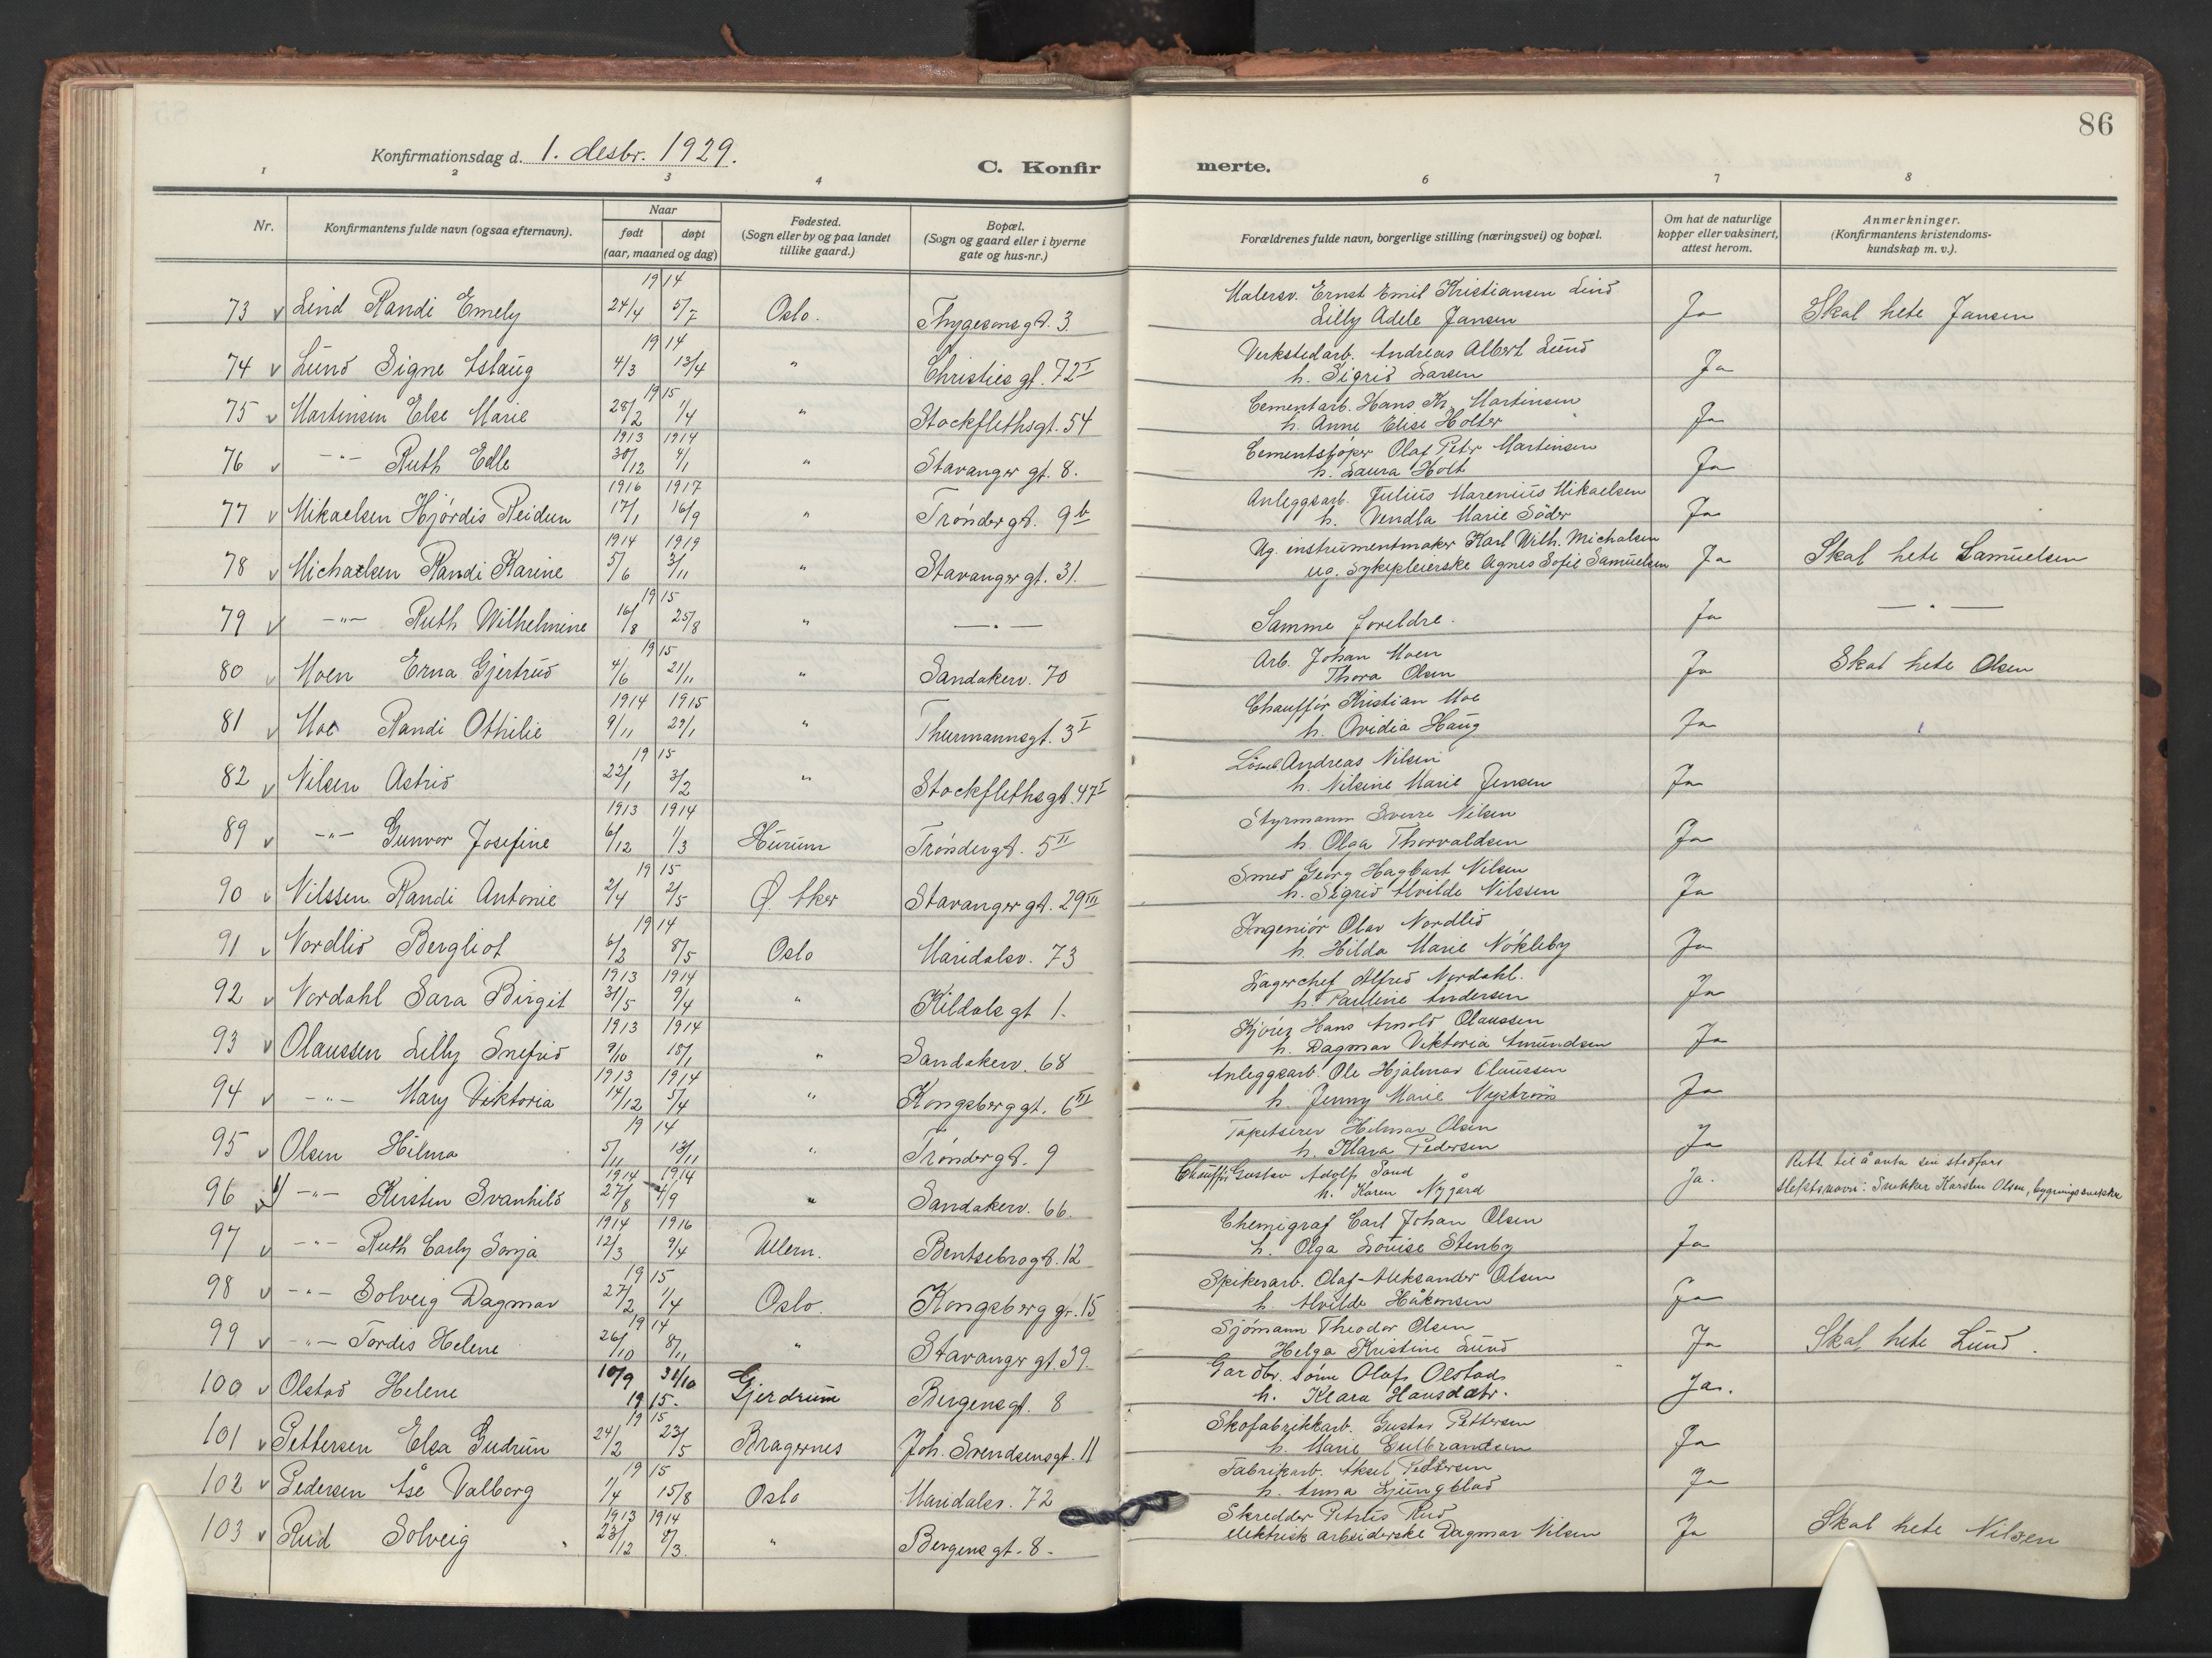 86
Konfirmationsdag d. 1. desbr. 1929.
C. Konfirmerte.
1 2 3 4 6 7 8
Nr. Konfirmantens fulde navn (ogsaa efternavn). Naar født døpt (aar, maaned og dag) Fødested. (Sogn eller by og paa landet tillike gaard.) Bopæl. (Sogn og gaard eller i byerne gate og hus-nr.) Forældrenes fulde navn, borgerlige stilling (næringsvei) og bopæl. Om hat de naturlige kopper eller vaksinert, attest herom. Anmerkninger. (Konfirmantens kristendoms-kundskap m. v.).
1914
73 v Lind Randi Emely 24/4 5/7 Oslo. Thygesensgt. 3. Malersv. Ernst Emil Kristiansen Lind
Lilly Adele Jansen Ja Skal hete Jansen
1914
74 v Lund Signe Aslaug 4/3 13/4 " Christies gt. 72 I Verkstedarb. Andreas Albert Lund
h. Sigrid Larsen Ja
1915
75 v Martinsen Else Marie 28/2 1/4 " Stockflethsgt. 54 Cementarb. Hans Kr. Martinsen
h. Anne Elise Holter Ja
1913 1914
76 v -"- Ruth Edle 30/12 4/1 " Stavanger gt. 8. Cementstøper Olaf Peter Martinsen
h. Laura Holt Ja
1916 1917
77 v Mikaelsen Hjördis Reidun 17/1 16/9 " Trøndergt. 9 b Anleggsarb. Julius Marenius Mikaelsen
h. Vendla Marie Söder Ja
1914 1919
78 v Michaelsen Randi Karine 5/6 3/11 " Stavanger gt. 31. Ug. instrumentmaker Karl Wilh. Michalsen
ug. Sykepleierske Agnes Sofie Samuelsen Ja Skal hete Samuelsen
1915
79 v -"- Ruth Wilhelmine 16/8 25/8 " -"- Samme foreldre. Ja -"-
1915
80 v Moen Erna Gjertrud 4/6 21/11 " Sandakerv. 70 Arb. Johan Moen
Thora Olsen Ja Skal hete Olsen
1914 1915
81 v Moe Randi Othilie 9/11 29/1 " Thurmannsgt. 3 I Chauffør Kristian Moe
h. Ovidia Haug Ja
1915
82 v Nilsen Astrid 22/1 3/2 " Stockflethsgt. 47 I Andreas Nilsen
h. Nilsine Marie Jensen Ja
1913 1914
89 v -"- Gunvor Josefine 6/12 1/3 Hurum Trøndergt. 5 II Styrmann Sverre Nilsen
h. Olga Thorvaldsen Ja
1915
90 v Nilssen Randi Antonie 2/4 2/5 Ø. Aker Stavanger gt. 29 III Smed Georg Hagbart Nilsen
h. Sigrid Alvilde Nilssen Ja
1914
91 v Nordlid Bergliot 6/2 8/5 Oslo Maridalsv. 73 Ingeniør Olav Nordlid
h. Hilda Marie Nökleby Ja
1913 1914
92 v Nordahl Sara Birgit 31/5 9/4 " Kildals gt 1. Lagerchef Alfred Nordahl.
h. Pauline Andersen Ja
1913 1914
93 v Olaussen Lilly Snefrid 9/10 18/1 " Sandakerv. 68 Kjører Hans Arnold Olaussen
h. Dagmar Viktoria Amundsen Ja
1913 1914
94 v -"- Mary Viktoria 14/12 5/4 " Kongsberggt. 6 III Anleggsarb. Ole Hjalmar Olaussen
h. Jenny Marie Nystrøm Ja
1914
95 v Olsen Hilma 5/11 13/11 " Trøndergt. 9 Tapetserer Hilmar Olsen
h. Klara Pedersen Ja
1914 1914
96 v -"- Kirsten Svanhild 27/8 4/9 " Sandakerv. 66. Chauffør Gustav Adolf Sand
h. Karen Nygård Ja. Rett til å anta sin stedfars
slektsnavn: Snekker Karsten Olsen, bygningssnekker
1914 1916
97 v -"- Ruth Carly Sonja 12/3 9/4 Ullern. Bentsebrogt. 12 Chemigraf Carl Johan Olsen
h. Olga Lovise Stenby Ja
1915
98 v -"- Solveig Dagmar 27/2 1/4 Oslo. Kongsberg gt. 15 Spikerarb. Olaf Aleksander Olsen
h. Alvilde Håkonsen Ja
1914
99 v -"- Tordis Helene 26/10 8/11 " Stavanger gt. 39 Sjömann Theodor Olsen
Helga Kristine Lund Ja Skal hete Lund.
100 v Olstad Helene 10/9 31/10 Gjerdrum Bergensgt. 8 Gardbr. sønn Olaf Olstad
1915. h. Klara Hansdatr. Ja.
1915
101 v Pettersen Elsa Gudrun 24/2 23/5 Bragernes Joh. Svendsensgt. 11 Skofabrikkarb. Gustav Pettersen
h. Marie Gulbrandsen Ja
1915
102 v Pedersen Åse Valborg 1/4 15/8 Oslo Maridalsv. 72 Fabrikarb. Aksel Pedersen
h. Anna Ljungblad Ja
1913 1914
103 v Rud Solveig 23/12 8/3. " Bergensgt. 8. Skredder Petrus Rud
elektrisk arbeiderske Dagmar Nilsen Ja Skal hete Nilsen